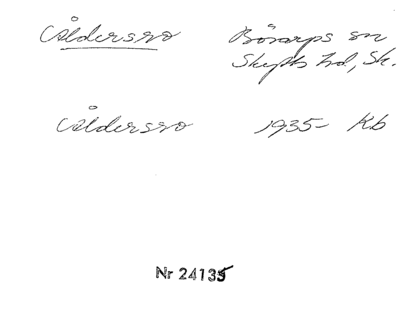 Åldersro Bösarps sn
Skytts hd, Sk.
Åldersro 1935- Kb
Nr 24135